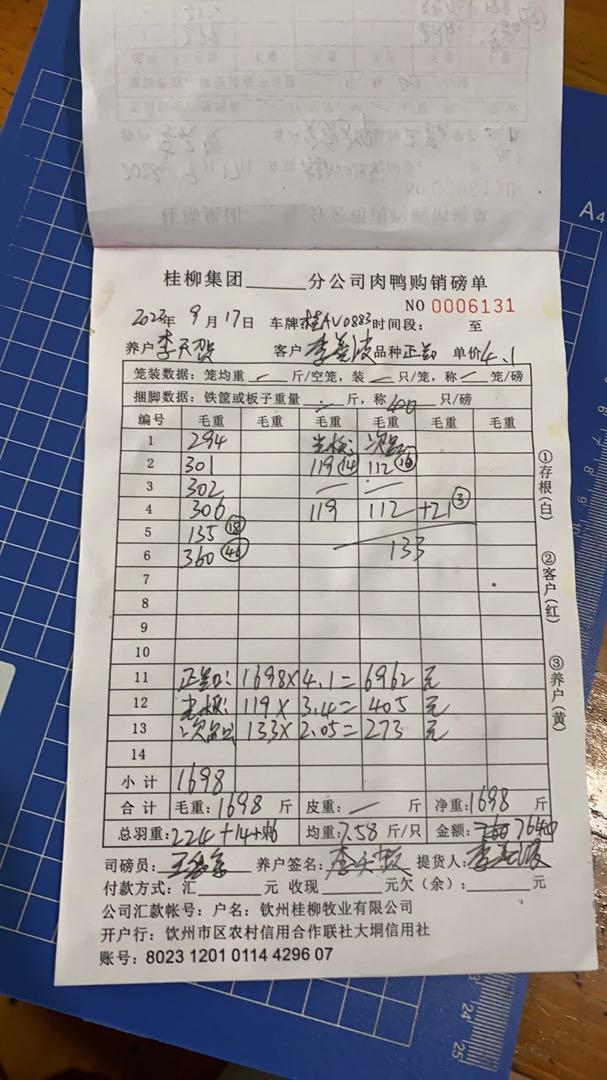 桂柳集团______分公司肉鸭购销磅单
NO 0006131
2023年 9月17日 车牌桂AV0883时间段: 至
养户 李天贺 客户 李善波 品种 正品 单价4.1
笼装数据: 笼均重 — 斤/空笼, 装 — 只/笼, 称 — 笼/磅
捆脚数据: 铁筐或板子重量 — 斤, 称 400 只/磅
编号 毛重 毛重 毛重 毛重 毛重 毛重
1 294 次品:
2 301 119 14 112 16
3 302 — —
4 306 119 112 +21 3
5 135 18
6 360 46 133
7
8
9
10
11 正品: 1698×4.1=6962 元
12 119×3.4=405 元
13 次品: 133×2.05=273 元
14
小计 1698
合计 毛重:1698 斤 皮重: — 斤 净重:1698 斤
总羽重:224+14+ 均重:7.58斤/只 金额: 7640
司磅员: 养户签名: 提货人:李善波
付款方式: 汇______元 收现______元欠(余):______元
公司汇款帐号: 户名: 钦州桂柳牧业有限公司
开户行: 钦州市区农村信用合作联社大垌信用社
账号: 8023 1201 0114 4296 07
①存根(白)
②客户(红)
③养户(黄)
A4
24
25